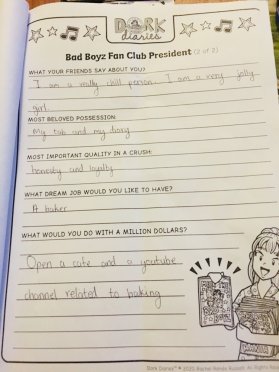 DORK
diaries
Bad Boyz Fan Club President (2 of 2)
WHAT YOUR FRIENDS SAY ABOUT YOU?
I am a really chill person. I am a very jolly
girl.
MOST BELOVED POSSESSION:
My tab and my diary
MOST IMPORTANT QUALITY IN A CRUSH:
honesty and loyalty
WHAT DREAM JOB WOULD YOU LIKE TO HAVE?
A baker
WHAT WOULD YOU DO WITH A MILLION DOLLARS?
Open a cafe and a youtube
channel related to baking
Dork Diaries™ © 2020, Rachel Renée Russell.